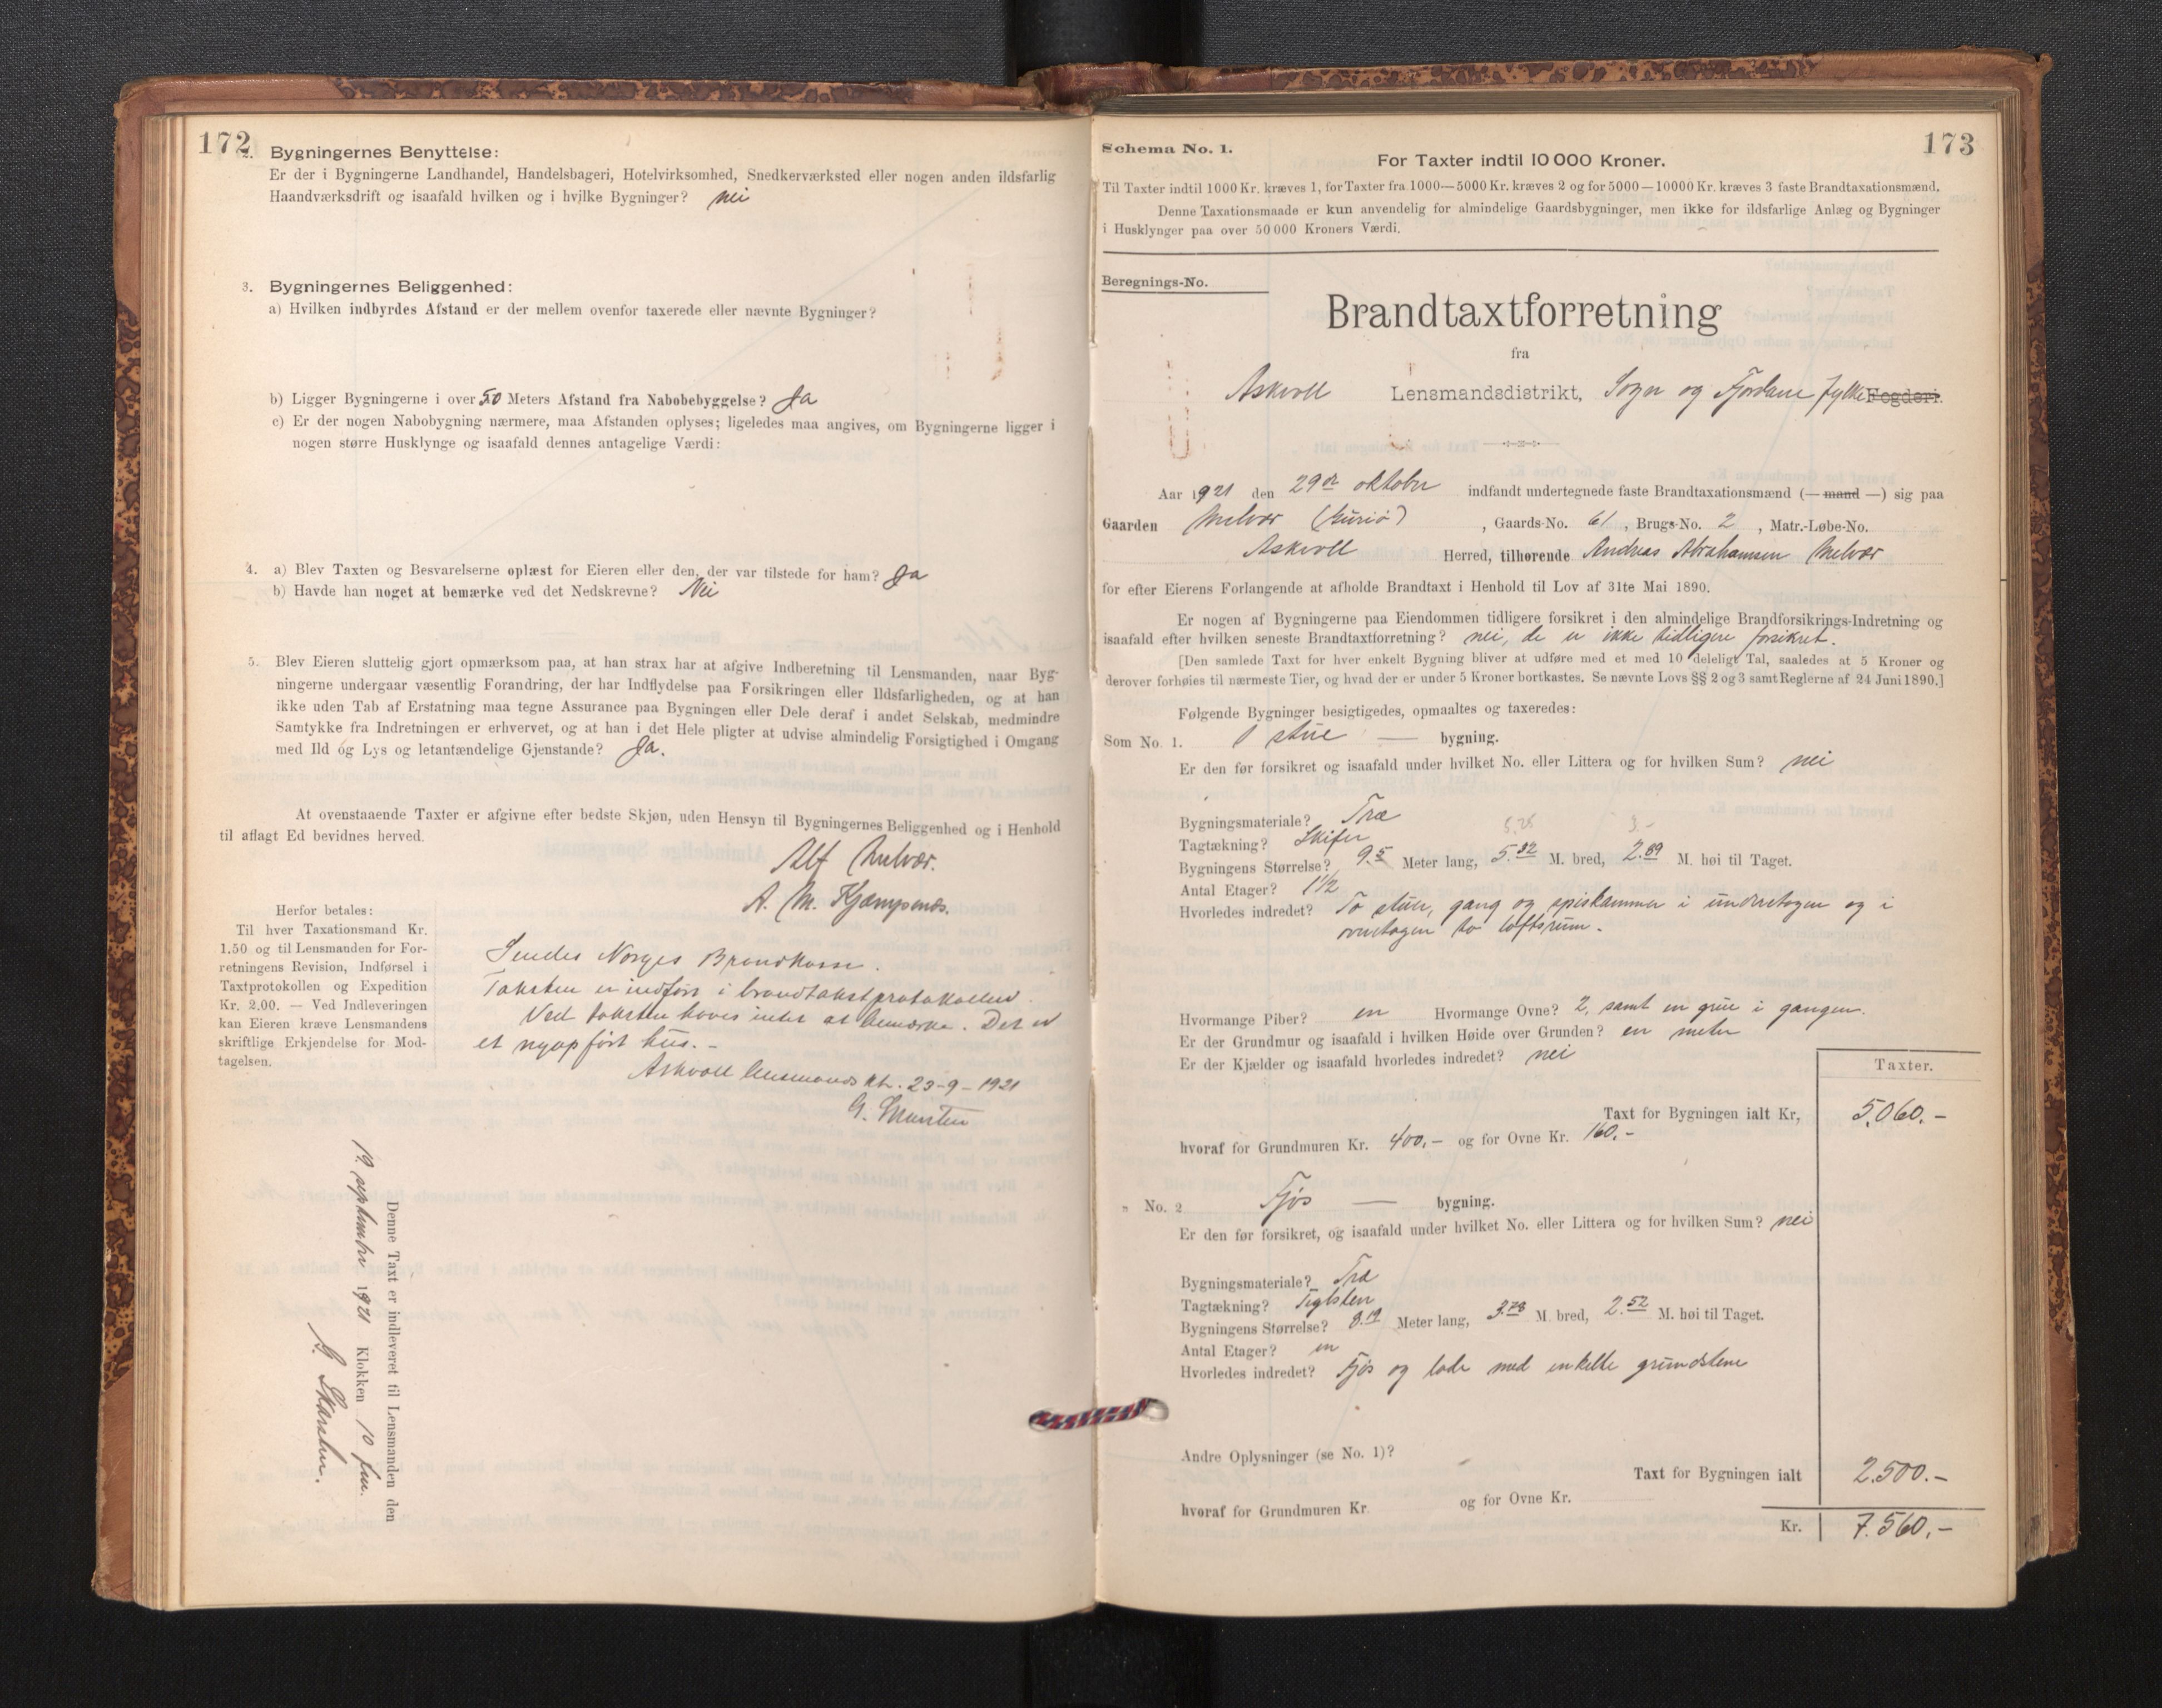 172
2. Bygningernes Benyttelse:
Er der i Bygningerne Landhandel, Handelsbageri, Hotelvirksomhed, Snedkerværksted eller nogen anden ildsfarlig
Haandværksdrift og isaafald hvilken og i hvilke Bygninger? nei
3. Bygningernes Beliggenhed:
a) Hvilken indbyrdes Afstand er der mellem ovenfor taxerede eller nævnte Bygninger?
b) Ligger Bygningerne i over 50 Meters Afstand fra Nabobebyggelse? Ja
c) Er der nogen Nabobygning nærmere, maa Afstanden oplyses; ligeledes maa angives, om Bygningerne ligger i
nogen større Husklynge og isaafald dennes antagelige Værdi:
4. a) Blev Taxten og Besvarelserne oplæst for Eieren eller den, der var tilstede for ham? Ja
b) Havde han noget at bemærke ved det Nedskrevne? Nei
5. Blev Eieren sluttelig gjort opmærksom paa, at han strax har at afgive Indberetning til Lensmanden, naar Byg-
ningerne undergaar væsentlig Forandring, der har Indflydelse paa Forsikringen eller Ildsfarligheden, og at han
ikke uden Tab af Erstatning maa tegne Assurance paa Bygningen eller Dele deraf i andet Selskab, medmindre
Samtykke fra Indretningen er erhvervet, og at han i det Hele pligter at udvise almindelig Forsigtighed i Omgang
med Ild og Lys og letantændelige Gjenstande? Ja.
At ovenstaaende Taxter er afgivne efter bedste Skjøn, uden Hensyn til Bygningernes Beliggenhed og i Henhold
til aflagt Ed bevidnes herved.
Alf Melvær.
A. M. Kjæmpenes.
Herfor betales:
Til hver Taxationsmand Kr.
1.50 og til Lensmanden for For-
retningens Revision, Indførsel i
Taxtprotokollen og Expedition
Kr. 2.00. — Ved Indleveringen
kan Eieren kræve Lensmandens
skriftlige Erkjendelse for Mod-
tagelsen.
Sendes Norges Brandkasse.
Taksten er indført i brandtakstprotokollen.
Ved taksten haves intet at bemærke. Det er
et nyopført hus. -
Askvoll lensmandskt. 23-9-1921
G. Skarsten
Denne Taxt er indleveret til Lensmanden den
19. september 1921 Klokken 10 fm.
G. Skarsten.
173
Schema No. 1.
For Taxter indtil 10 000 Kroner.
Til Taxter indtil 1000 Kr. kræves 1, for Taxter fra 1000—5000 Kr. kræves 2 og for 5000—10000 Kr. kræves 3 faste Brandtaxationsmænd.
Denne Taxationsmaade er kun anvendelig for almindelige Gaardsbygninger, men ikke for ildsfarlige Anlæg og Bygninger
i Husklynger paa over 50 000 Kroners Værdi.
Beregnings-No.
Brandtaxtforretning
fra
Askvoll Lensmandsdistrikt, Sogn og Fjordane fylke Fogderi.
Aar 1921 den 29de oktober indfandt undertegnede faste Brandtaxationsmænd (— mand —) sig paa
Gaarden Melvær , Gaards-No. 61, Brugs-No. 2, Matr.-Løbe-No.
Askvoll Herred, tilhørende Andreas Abrahamsen Melvær
for efter Eierens Forlangende at afholde Brandtaxt i Henhold til Lov af 31te Mai 1890.
Er nogen af Bygningerne paa Eiendommen tidligere forsikret i den almindelige Brandforsikrings-Indretning og
isaafald efter hvilken seneste Brandtaxtforretning? nei, de er ikke tidligere forsikret.
[Den samlede Taxt for hver enkelt Bygning bliver at udføre med et med 10 deleligt Tal, saaledes at 5 Kroner og
derover forhøies til nærmeste Tier, og hvad der er under 5 Kroner bortkastes. Se nævnte Lovs §§ 2 og 3 samt Reglerne af 24 Juni 1890.]
Følgende Bygninger besigtigedes, opmaaltes og taxeredes:
Som No. 1. 1 stue — bygning.
Er den før forsikret og isaafald under hvilket No. eller Littera og for hvilken Sum? nei
Bygningsmateriale? Træ
5.25 3.-
Tagtækning? Skifer
Bygningens Størrelse? 9.5 Meter lang, 5.32 M. bred, 2.89 M. høi til Taget.
Antal Etager? 1½
Hvorledes indredet? To stuer, gang og spiskammer i underetagen og i
overetagen to loftsrum.
Hvormange Piber? en Hvormange Ovne? 2, samt en grue i gangen.
Er der Grundmur og isaafald i hvilken Høide over Grunden? en meter
Er der Kjælder og isaafald hvorledes indredet? nei
Taxter.
Taxt for Bygningen ialt Kr, 5,060.-
hvoraf for Grundmuren Kr. 400,- og for Ovne Kr. 160.-
" No. 2 Fjøs — bygning.
Er den før forsikret, og isaafald under hvilket No. eller Littera og for hvilken Sum? nei
Bygningsmateriale? Træ
Tagtækning? Teglsten
Bygningens Størrelse? 8.19 Meter lang, 3.78 M. bred, 2.52 M. høi til Taget.
Antal Etager? en
Hvorledes indredet? Fjøs og lade med enkelte grundstene
Andre Oplysninger (se No. 1)?
Taxt for Bygningen ialt 2.500.-
hvoraf for Grundmuren Kr. og for Ovne Kr.
Kr. 7.560,-